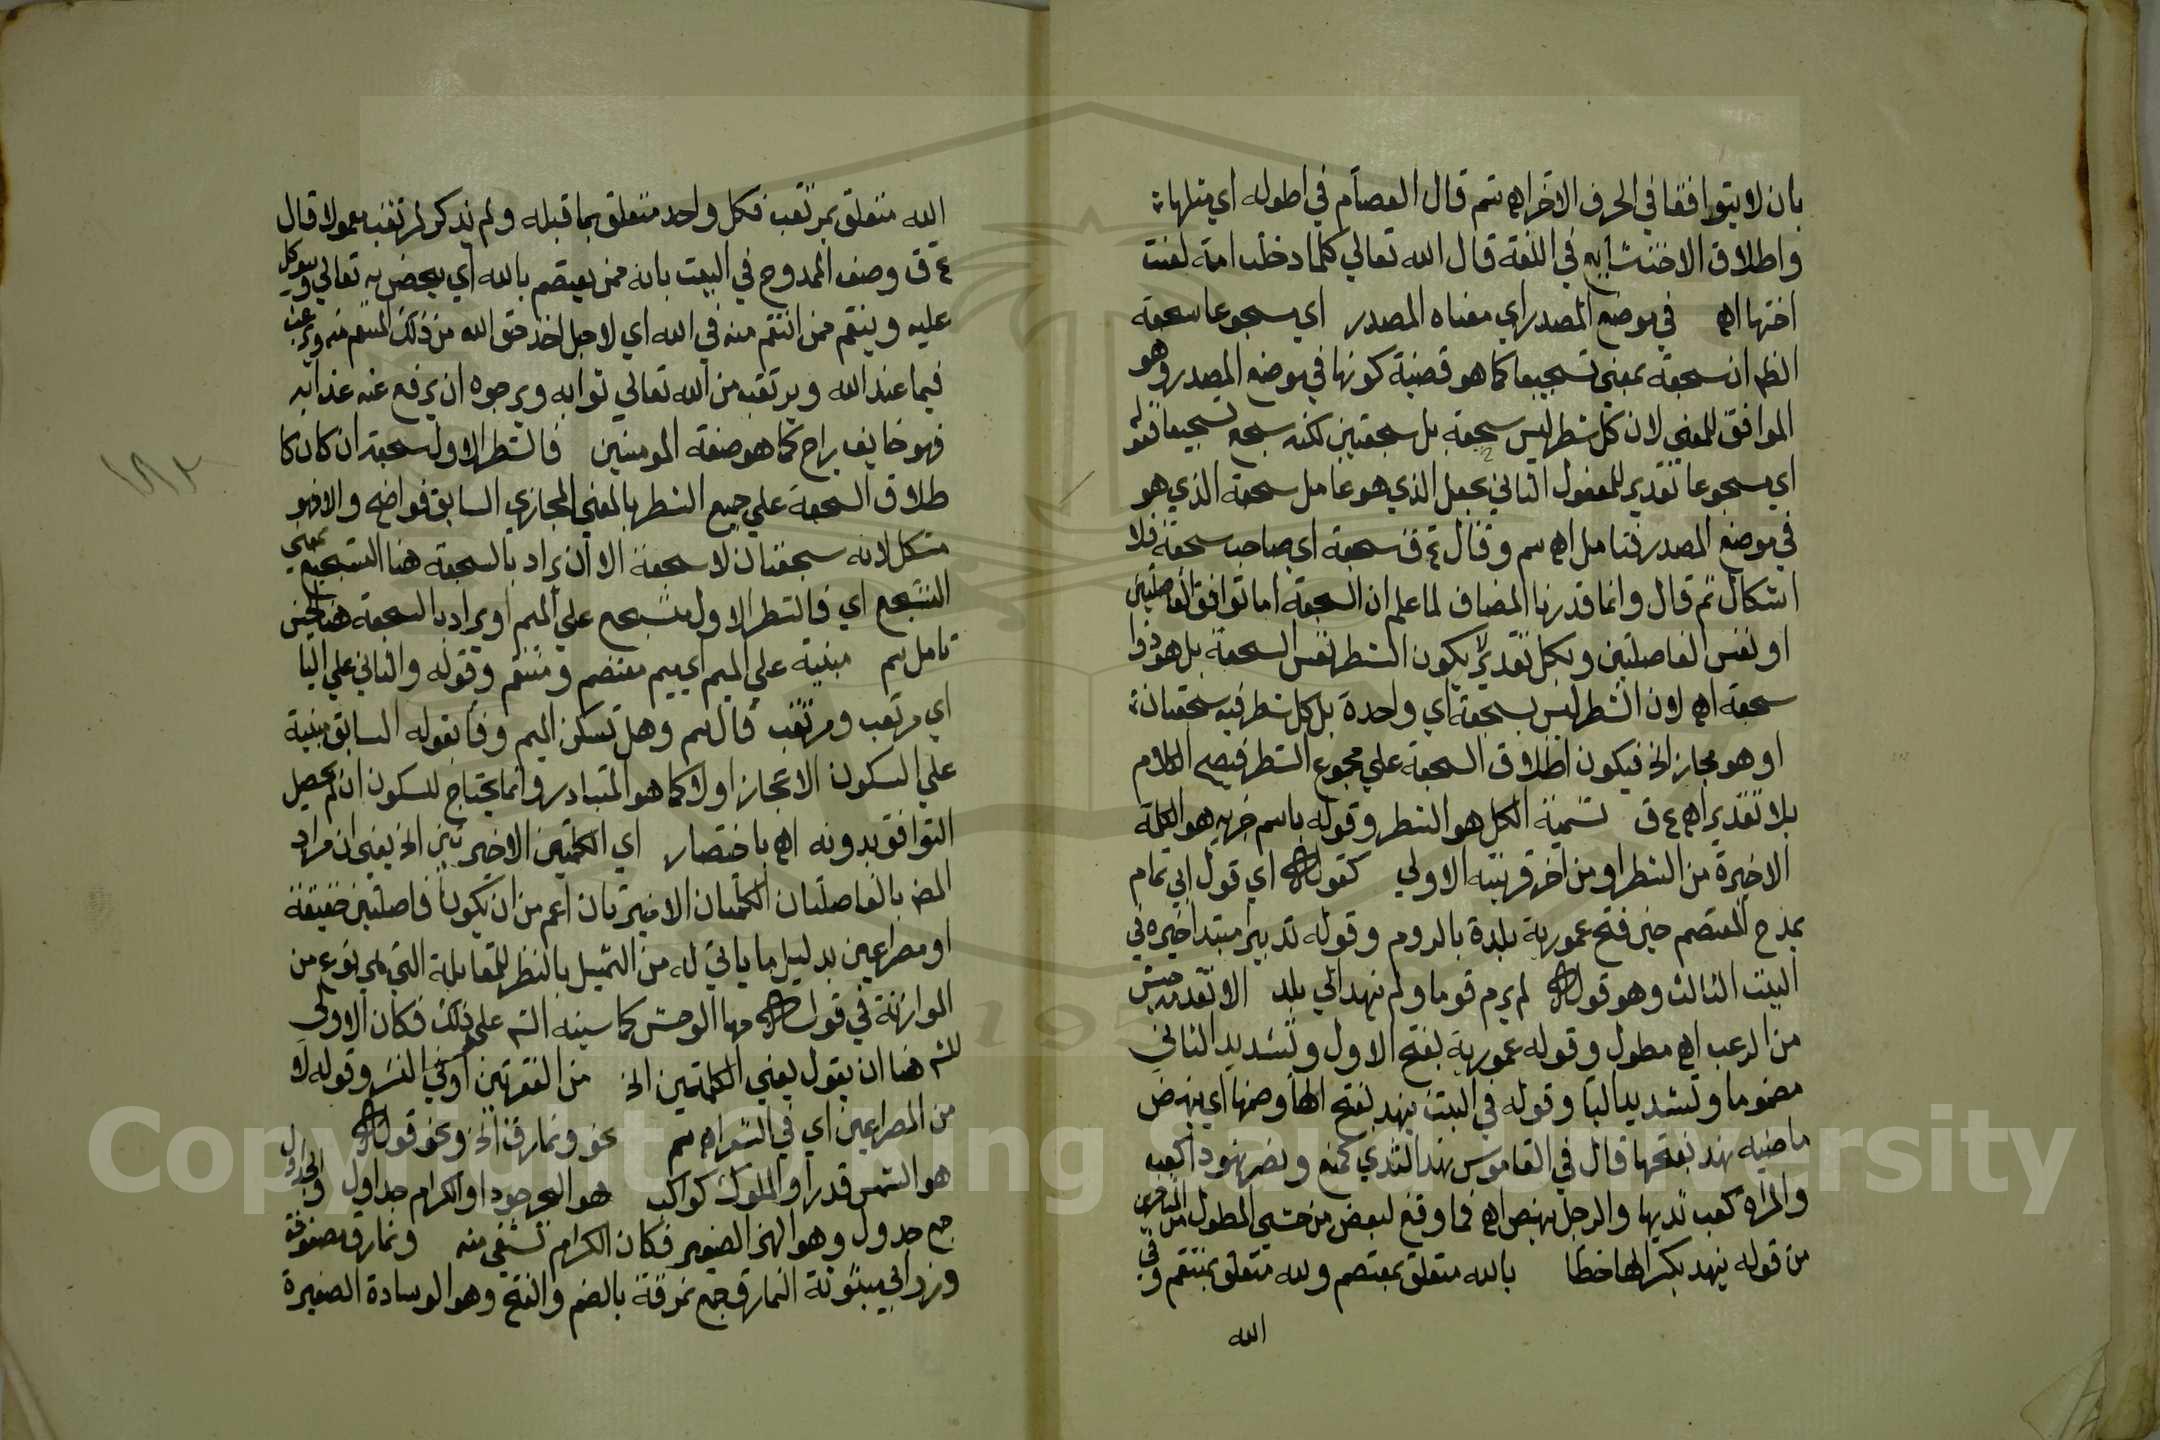 بان لا يتوافقا في الحرف الاخر اه سم قال العصام في اطوله اي مثلها
واطلاق الاخت شايع في اللغة قال الله تعالي كلما دخلت امة لعنت
اختها اه في موضع المصدر اي معناه المصدر اي سجوعا سجعة
الظ ان سجعة بمعني تسجيعا كما هو قضية كونها في موضع المصدر وهو
الموافق للمعني لان كل شطر ليس سجعة بل سجعتين لكنه سجع تسجيعا فقوله
اي سجوعا تقدير للمفعول الثاني بجعل الذي هو عامل سجعة الذي هو
في موضع المصدر فتامل اه سم وقال ع ق سجعة اي صاحب سجعة فلا
اشكال ثم قال وانما قدرنا المضاف لما علم ان السجعة اما توافق الفاصلتين
او نفس الفاصلتين وبكل تقدير لا يكون الشطر نفس السجعة بل هو ذوا
سجعة اه لان الشطر ليس بسجعة اي واحدة بل كل شطر فيه سجعتان
او هو مجاز الخ فيكون اطلاق السجعة علي مجموع الشطر فيصح الكلام
بلا تقدير اه ع ق تسمية الكل هو الشطر وقوله باسم جزيه هو الكلمة
الاخيرة من الشطر او من اخر قرينته الاولي كقوله اي قول ابي تمام
بمدح المعتصم حين فتح عمورية بلدة بالروم وقوله تدبير مبتدا خبره في
البيت الثالث وهو قوله لم يرم قوما ولم ينهد الي بلد الا تقدمه جيش
من الرعب اه مطول وقوله عمورية بفتح الاول وتشديد الثاني
مضموما وتشديد اليا وقوله في البيت ينهد بفتح الها وضمها اي ينهض
ماضيه نهد بفتحها قال في القاموس نهد الثدي كمنع ونصر نهودا كعب
والمراه كعب ثديها والرجل نهض اه فما وقع لبعض من حشي المطول من المتاخرين
من قوله ينهد بكسر الها خطا بالله متعلق بمعتصم ولله متعلق بمنتقم وفي
الله
الله متعلق بمرتغب فكل واحد متعلق بما قبله ولم يذكر لمرتقب معمولا قال
ع ق وصف الممدوح في البيت بانه ممن يعتصم بالله اي يتحصن به تعالي ويتوكل
عليه وينتقم ممن انتقم منه في الله اي لاجل اخذ حق الله من ذلك المنتقم منه ويرغب
فيما عند الله ويرتقب من الله تعالي ثوابه ويرجوه ان يرفع عنه عذابه
فهو خايف راج كما هو صفة المومنين فالشطر الاول سجعة ان كان كا
طلاق السجعة علي جميع الشطر بالمعني المجازي السابق فواضح والا فهو
مشكل لانه سجعتان لا سجعة الا ان يراد بالسجعة هنا التسجيع بمعني
التسجع اي فالشطر الاول متسجع علي الميم او يراد بالسجعة هنا الجنس
تامل سم مبنية علي الميم اي ميم معتصم ومنتقم وقوله والثاني علي البا
اي مرتغب ومرتقب قال سم وهل تسكن الميم وفا بقوله السابق مبنية
علي السكون الاعجاز او لا كما هو المتبادر وانما يحتاج للسكون ان لم يحصل
التوافق بدونه اه باختصار اي الكلمتين الاخيرتين الخ يعني ان مراد
المص بالفاصلتان الكلمتان الاخيرتان اعم من ان يكونا فاصلتين حقيقة
او مصراعين بدليل ما ياتي له من التمثيل بالنظر للمقابلة التي هي نوع من
الموازنة في قوله مها الوحش كما سينبه الش علي ذلك فكان الاولي
للش هنا ان يقول يعني الكلمتين الخ من الفقرتين اي في النثر وقوله او
من المصراعين اي في الشعر اه سم نحو ونمارق الخ ونحو قوله
هو الشمس قدرا والملوك كواكب هو البحر جودا والكرام جداول والجداول
جمع جدول وهو النهر الصغير فكان الكرام تستقي منه ونمارق مصفوفة
وزرابي مبثوثة النمارق جمع نمرقة بالضم والفتح وهو الوسادة الصغيرة
١٩٢
Copyright © King Saud University
195